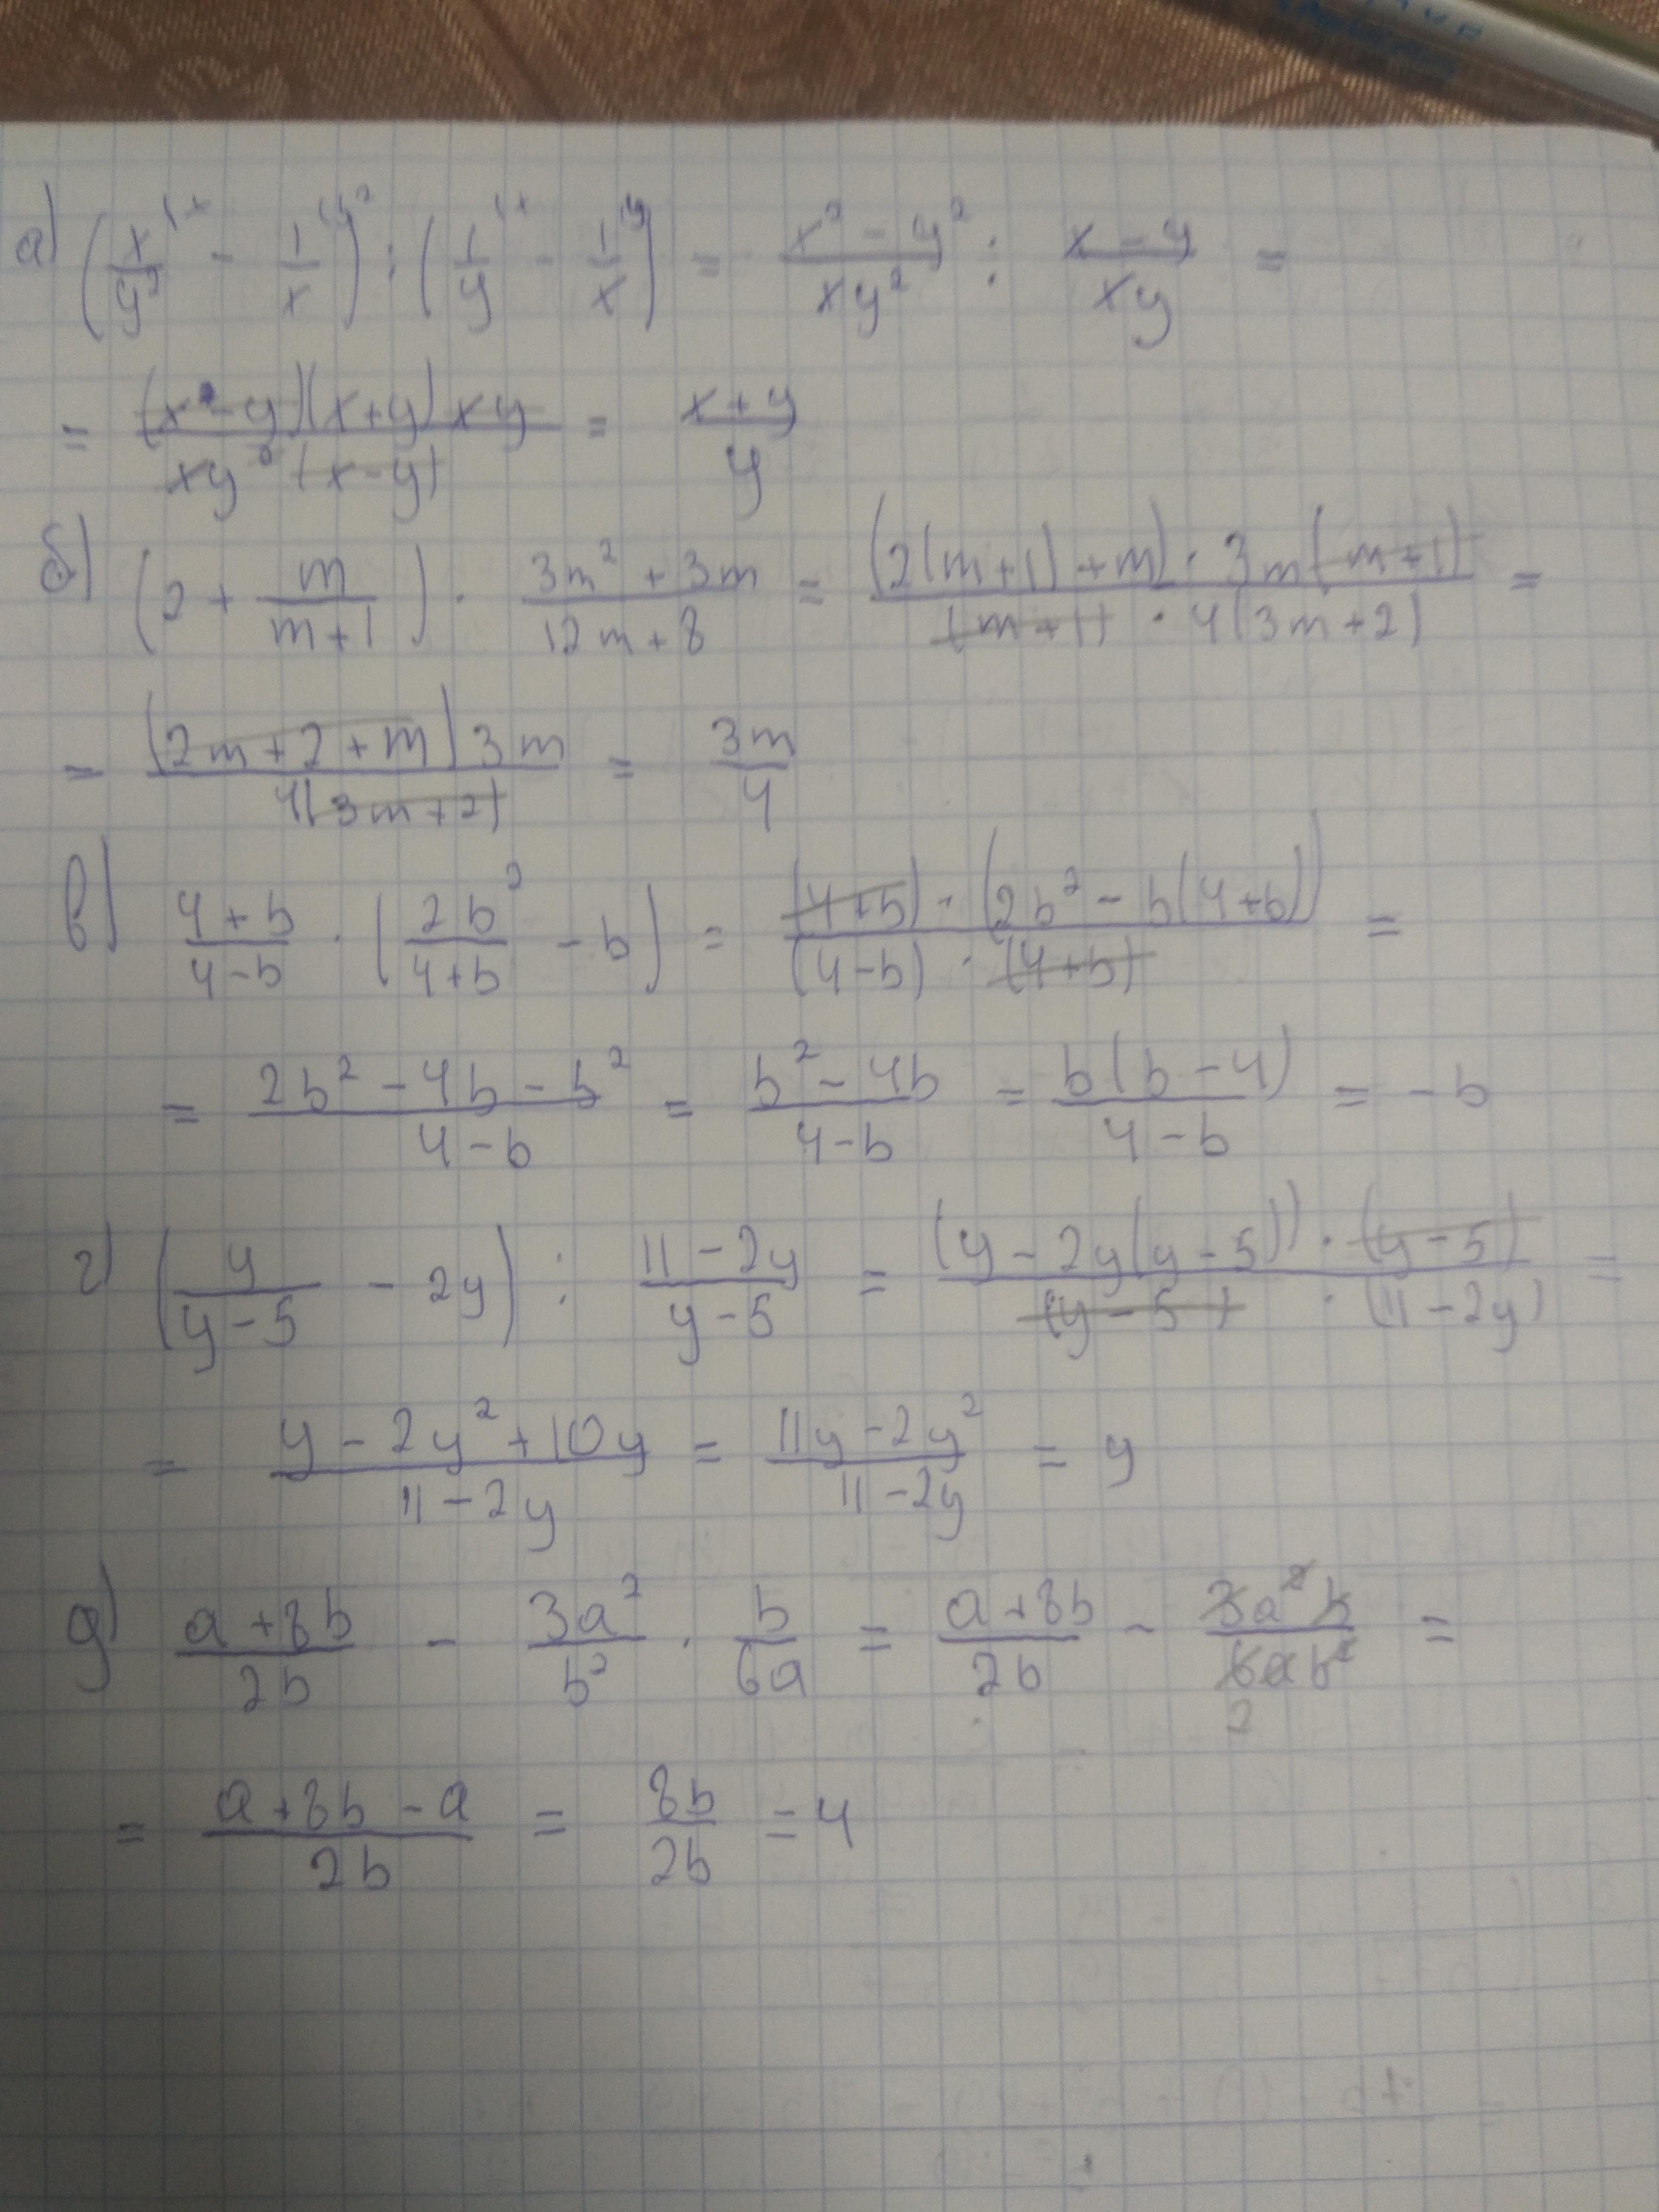 а) (x/y² ^(x - 1/x ^(y²) : (1/y ^(x - 1/x ^(y) = (x² - y²)/(xy²) : (x - y)/(xy) =
= ((x - y)(x+y)xy)/(xy²(x-y)) = (x+y)/y
б) (2 + m/(m+1)) · (3m² + 3m)/(12m + 8) = ((2(m+1)+m) · 3m(m+1))/((m+1) · 4(3m+2)) =
= ((2m+2+m)3m)/(4(3m+2)) = 3m/4
в) (4+b)/(4-b) · (2b²/(4+b) - b) = ((4+b) · (2b² - b(4+b)))/((4-b) · (4+b)) =
= (2b² - 4b - b²)/(4-b) = (b² - 4b)/(4-b) = (b(b-4))/(4-b) = -b
г) (y/(y-5) - 2y) : (11-2y)/(y-5) = ((y - 2y(y-5)) · (y-5))/((y-5) · (11-2y)) =
= (y - 2y² + 10y)/(11-2y) = (11y - 2y²)/(11-2y) = y
д) (a+8b)/(2b) - 3a²/b² · b/(6a) = (a+8b)/(2b) - (3a²b)/(6ab²) =
2
= (a+8b-a)/(2b) = 8b/2b = 4